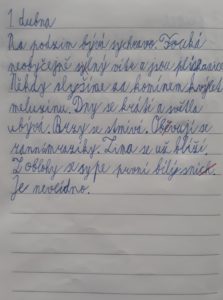 1. dubna
Na podzim bývá sychravo. Fouká
neobyčejně silný vítr a jsou plískanice.
Někdy slyšíme za komínem kvílet
meluzínu. Dny se krátí a světla
ubývá. Brzy se stmívá. Objevují se
ranní mrazíky. Zima se už blíží.
Z oblohy se sype první bílý sníh.
Je nevlídno.